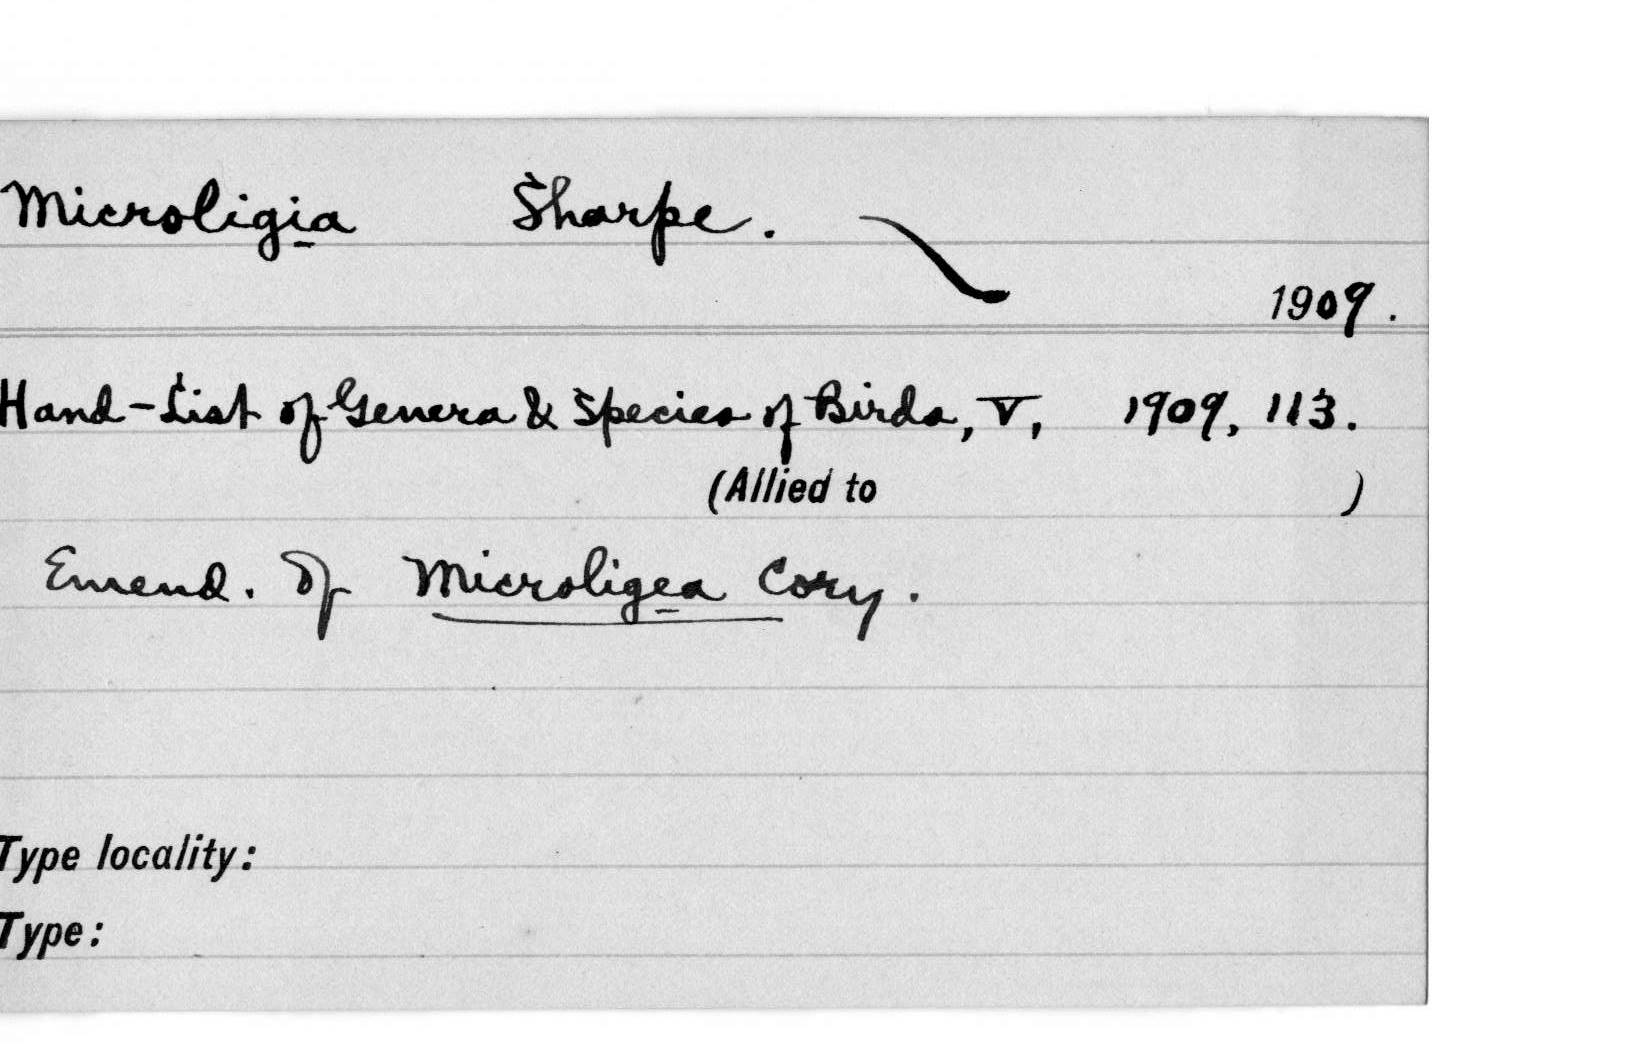 Microligia Sharpe.
1909.
Hand-List of Genera & Species of Birds, V, 1909, 113.
(Allied to )
Emend. of Microligea Cory.
Type locality:
Type: